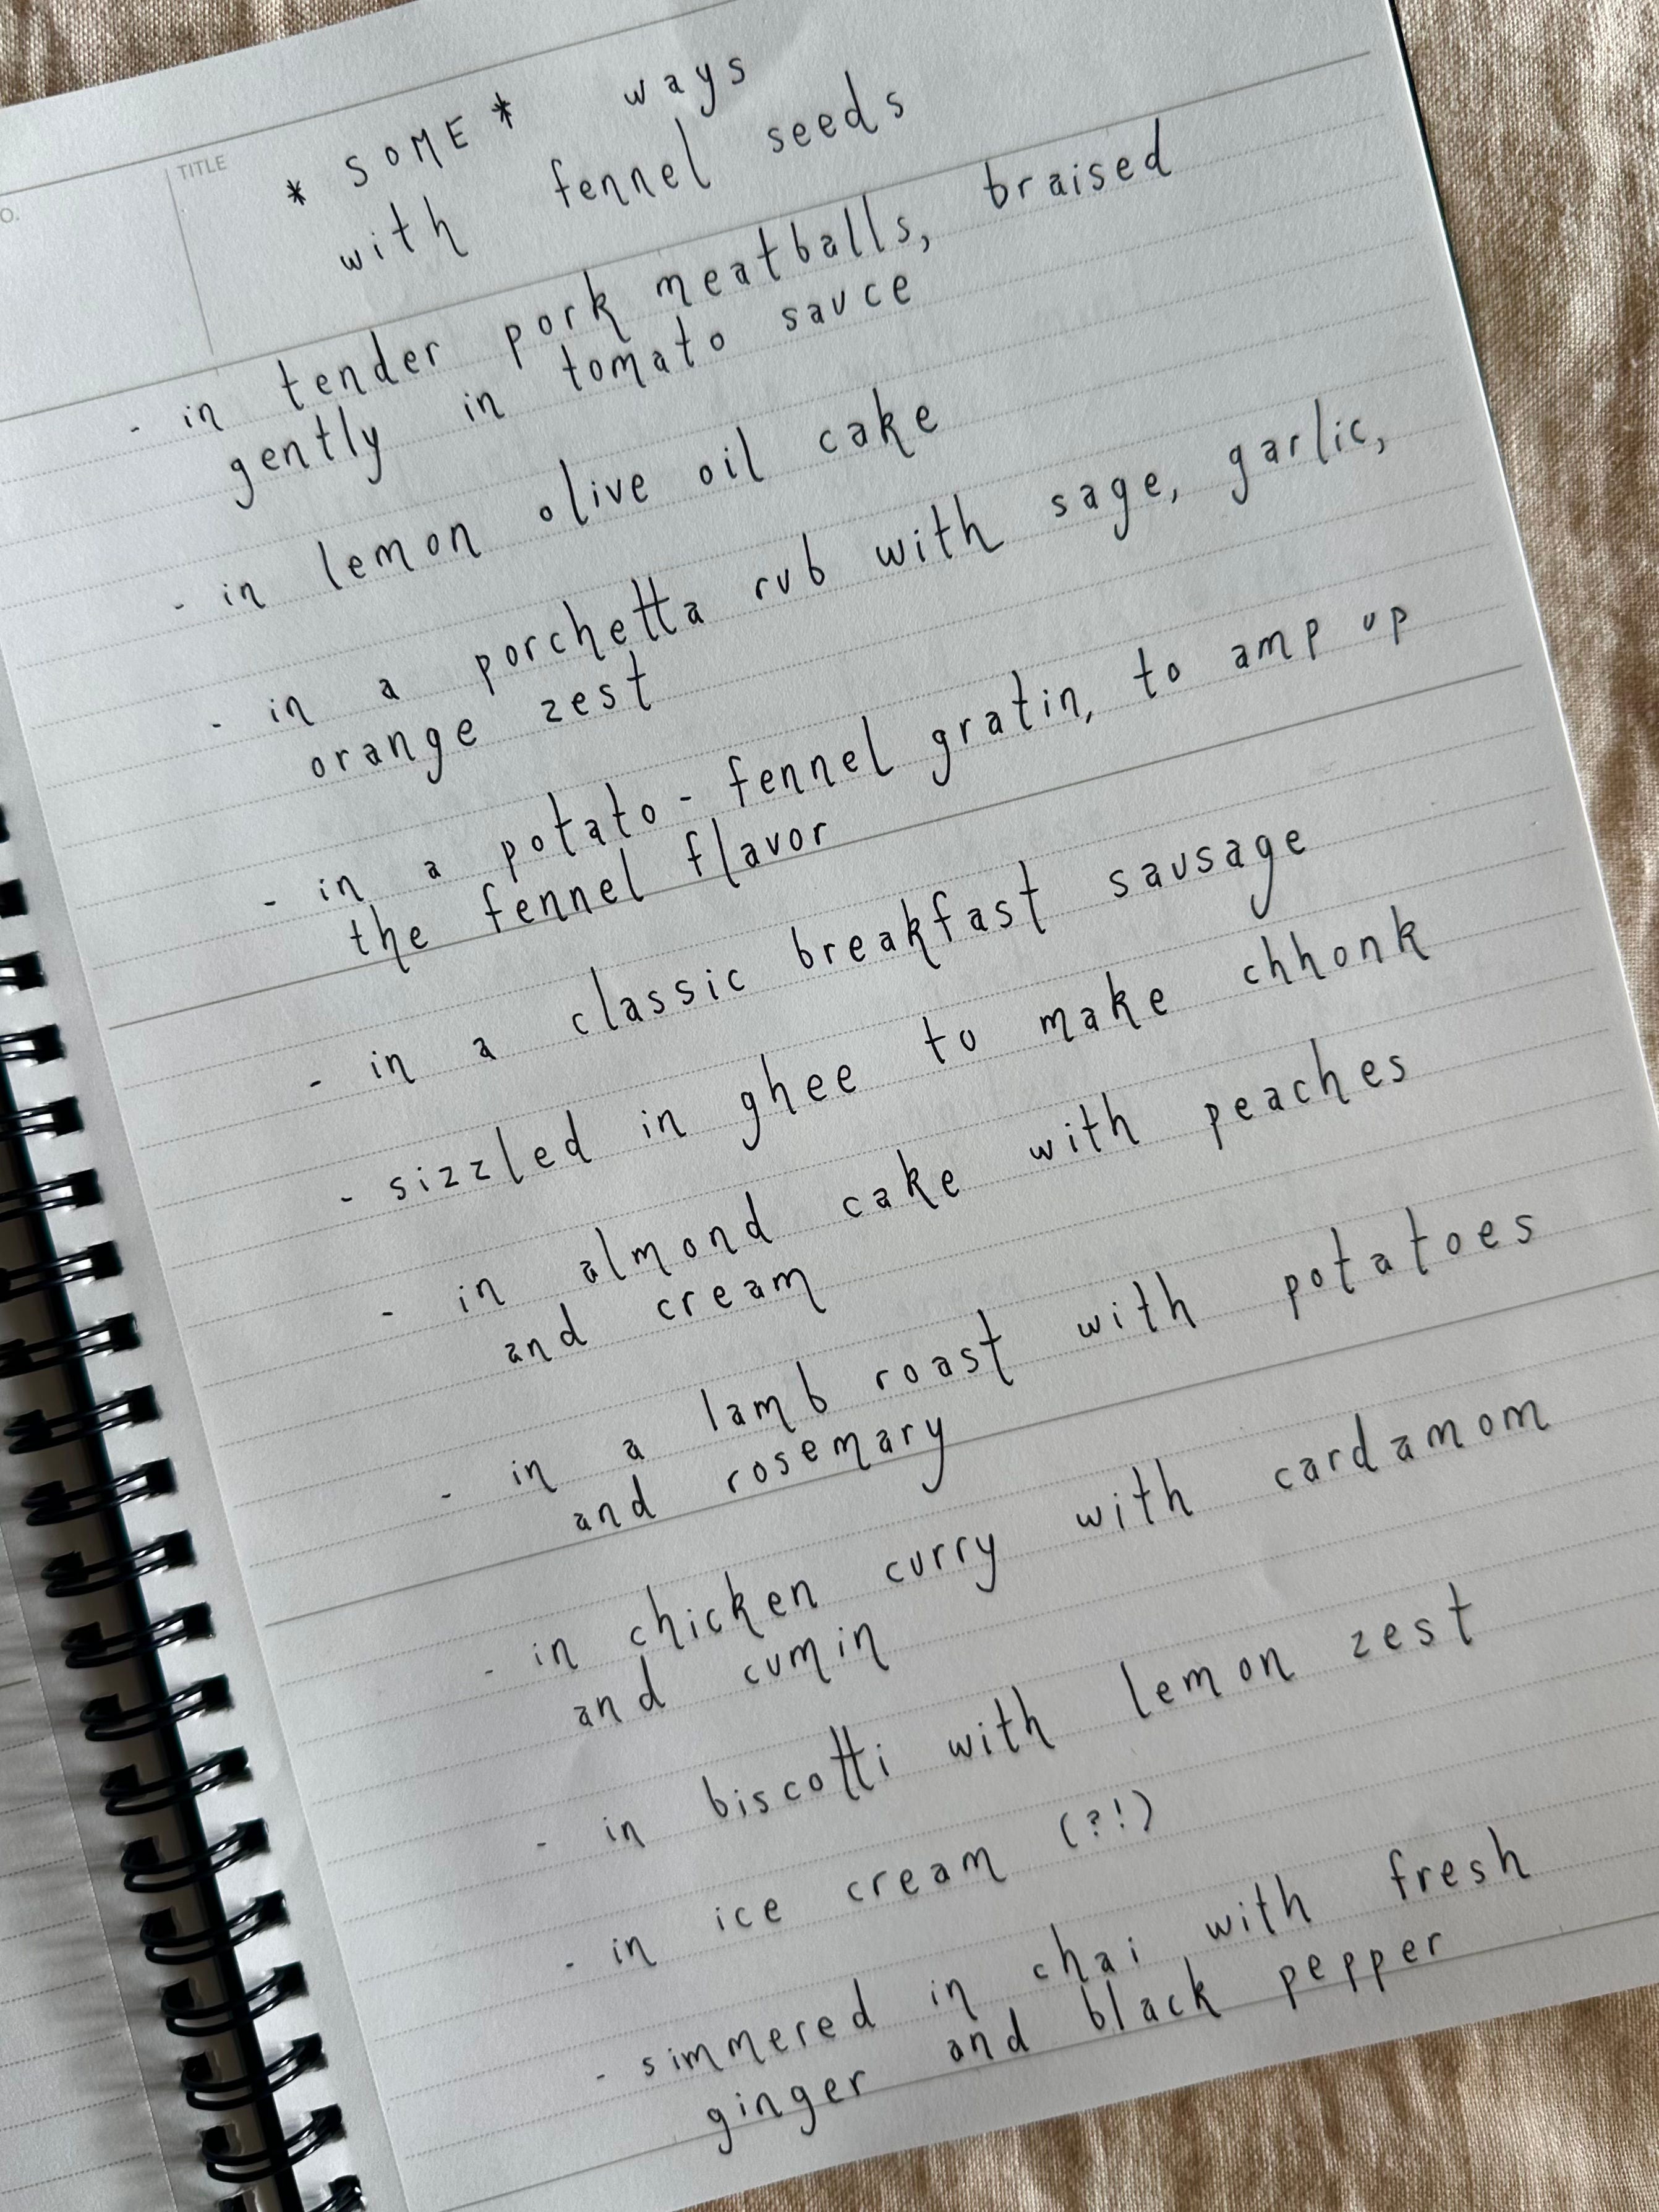 O.
TITLE
* SOME * ways
with fennel seeds
- in tender pork meatballs, braised
gently in tomato sauce
- in lemon olive oil cake
- in a porchetta rub with sage, garlic,
orange zest
- in a potato-fennel gratin, to amp up
the fennel flavor
- in a classic breakfast sausage
- sizzled in ghee to make chhonk
- in almond cake with peaches
and cream
- in a lamb roast with potatoes
and rosemary
- in chicken curry with cardamom
and cumin
- in biscotti with lemon zest
- in ice cream (?!)
- simmered in chai with fresh
ginger and black pepper